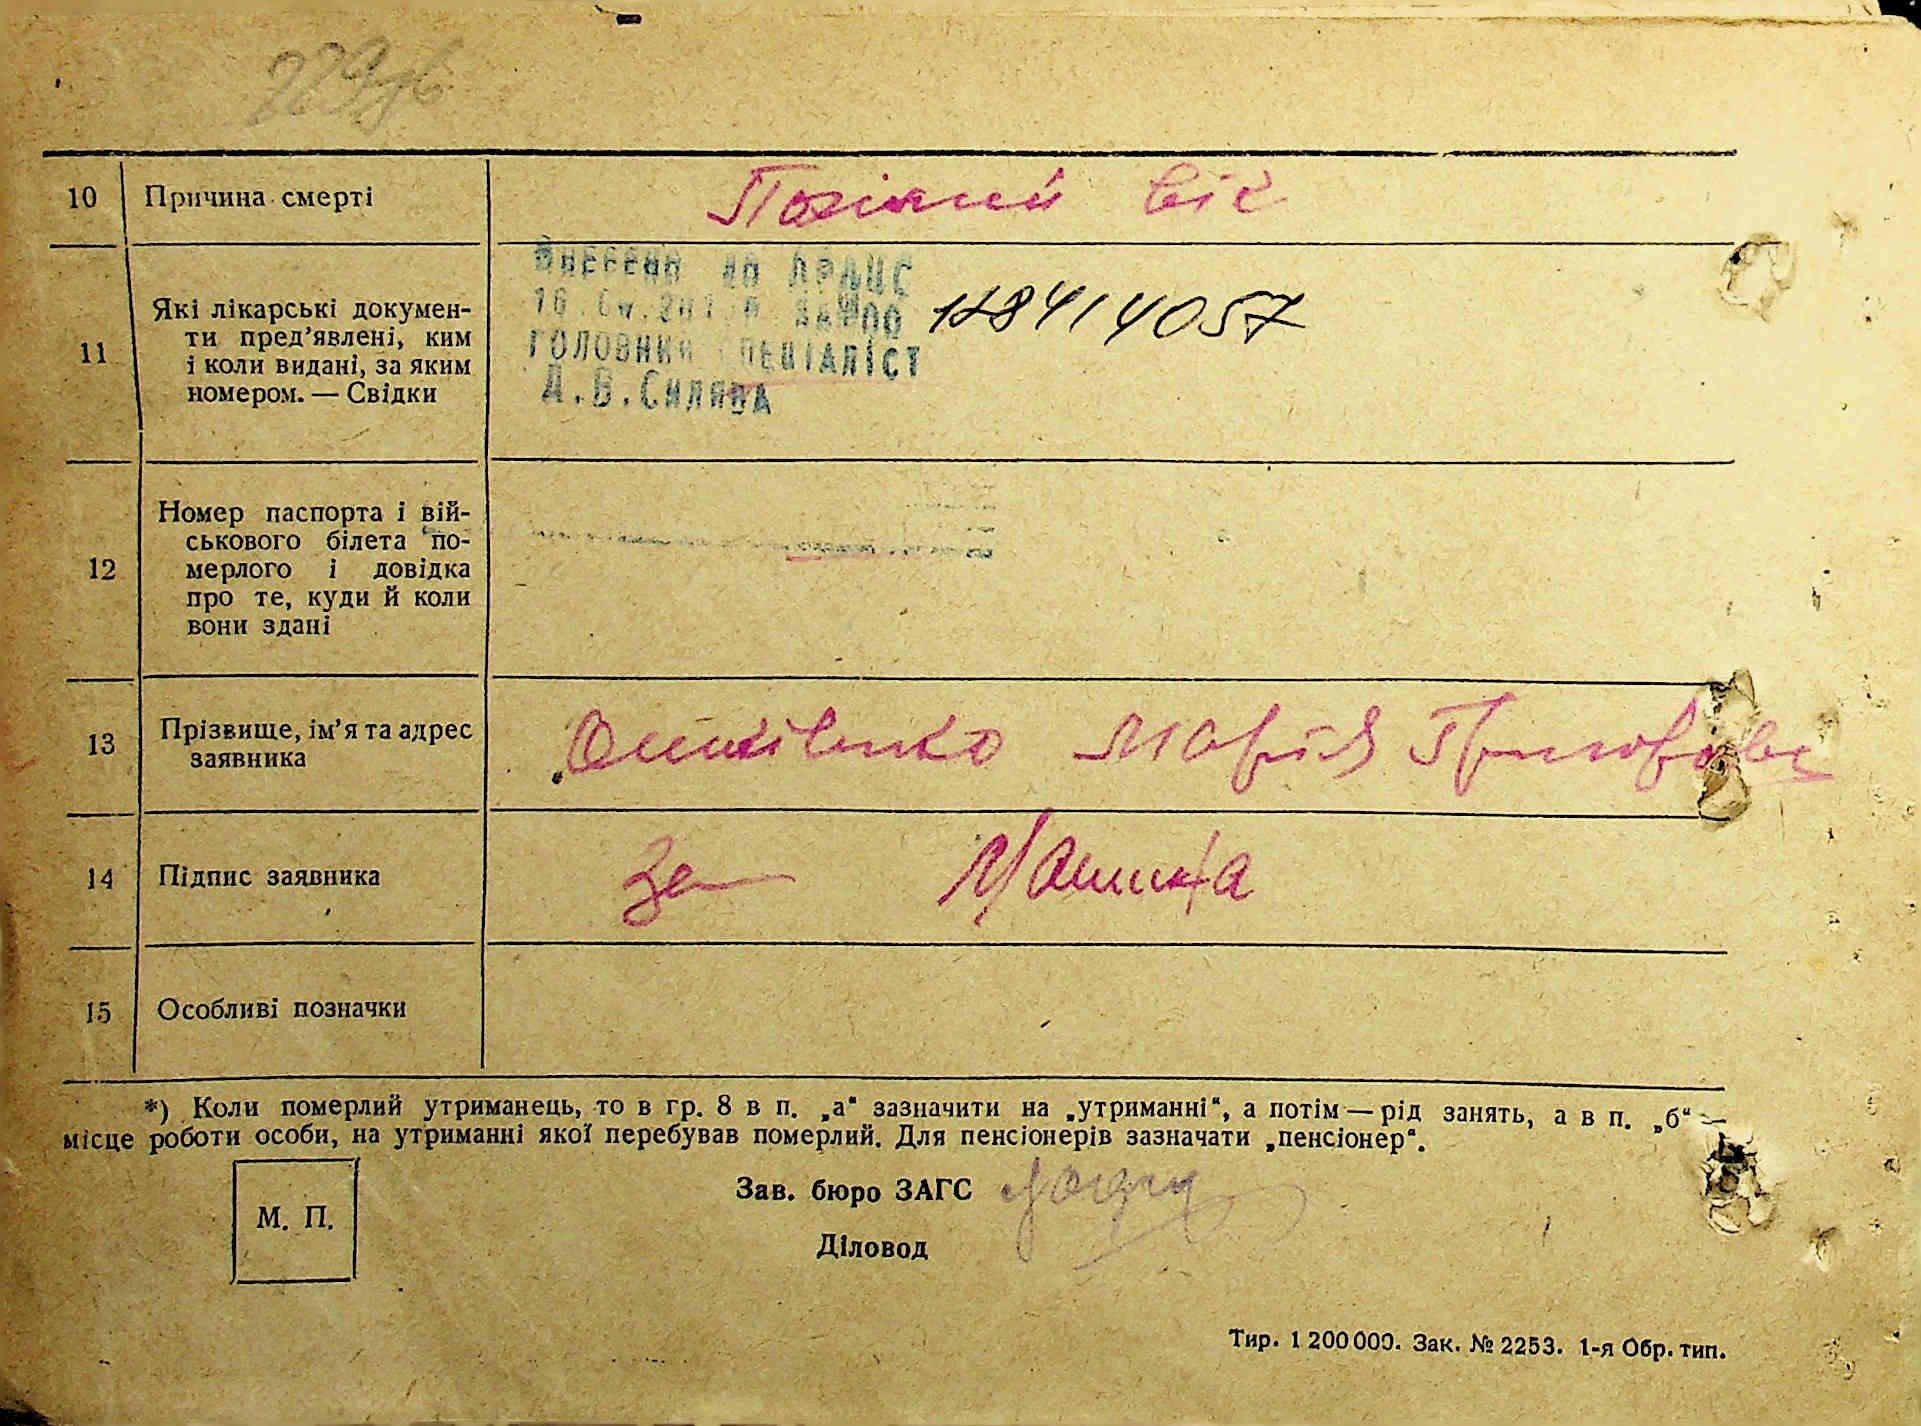 10 Причина смерті Похілий вік
11 Які лікарські докумен-
ти пред’явлені, ким
і коли видані, за яким
номером. — Свідки
Внесено до ДРАЦС
за №00
головний спеціаліст
128414057
12 Номер паспорта і вій-
ськового білета по-
мерлого і довідка
про те, куди й коли
вони здані
13 Прізвище, ім’я та адрес
заявника
Марія Григоровн
14 Підпис заявника За
15 Особливі позначки
*) Коли померлий утриманець, то в гр. 8 в п. „а“ зазначити на „утриманні“, а потім — рід занять, а в п. „б“ —
місце роботи особи, на утриманні якої перебував померлий. Для пенсіонерів зазначати „пенсіонер“.
М. П.
Зав. бюро ЗАГС
Діловод
Тир. 1 200 000. Зак. № 2253. 1-я Обр. тип.